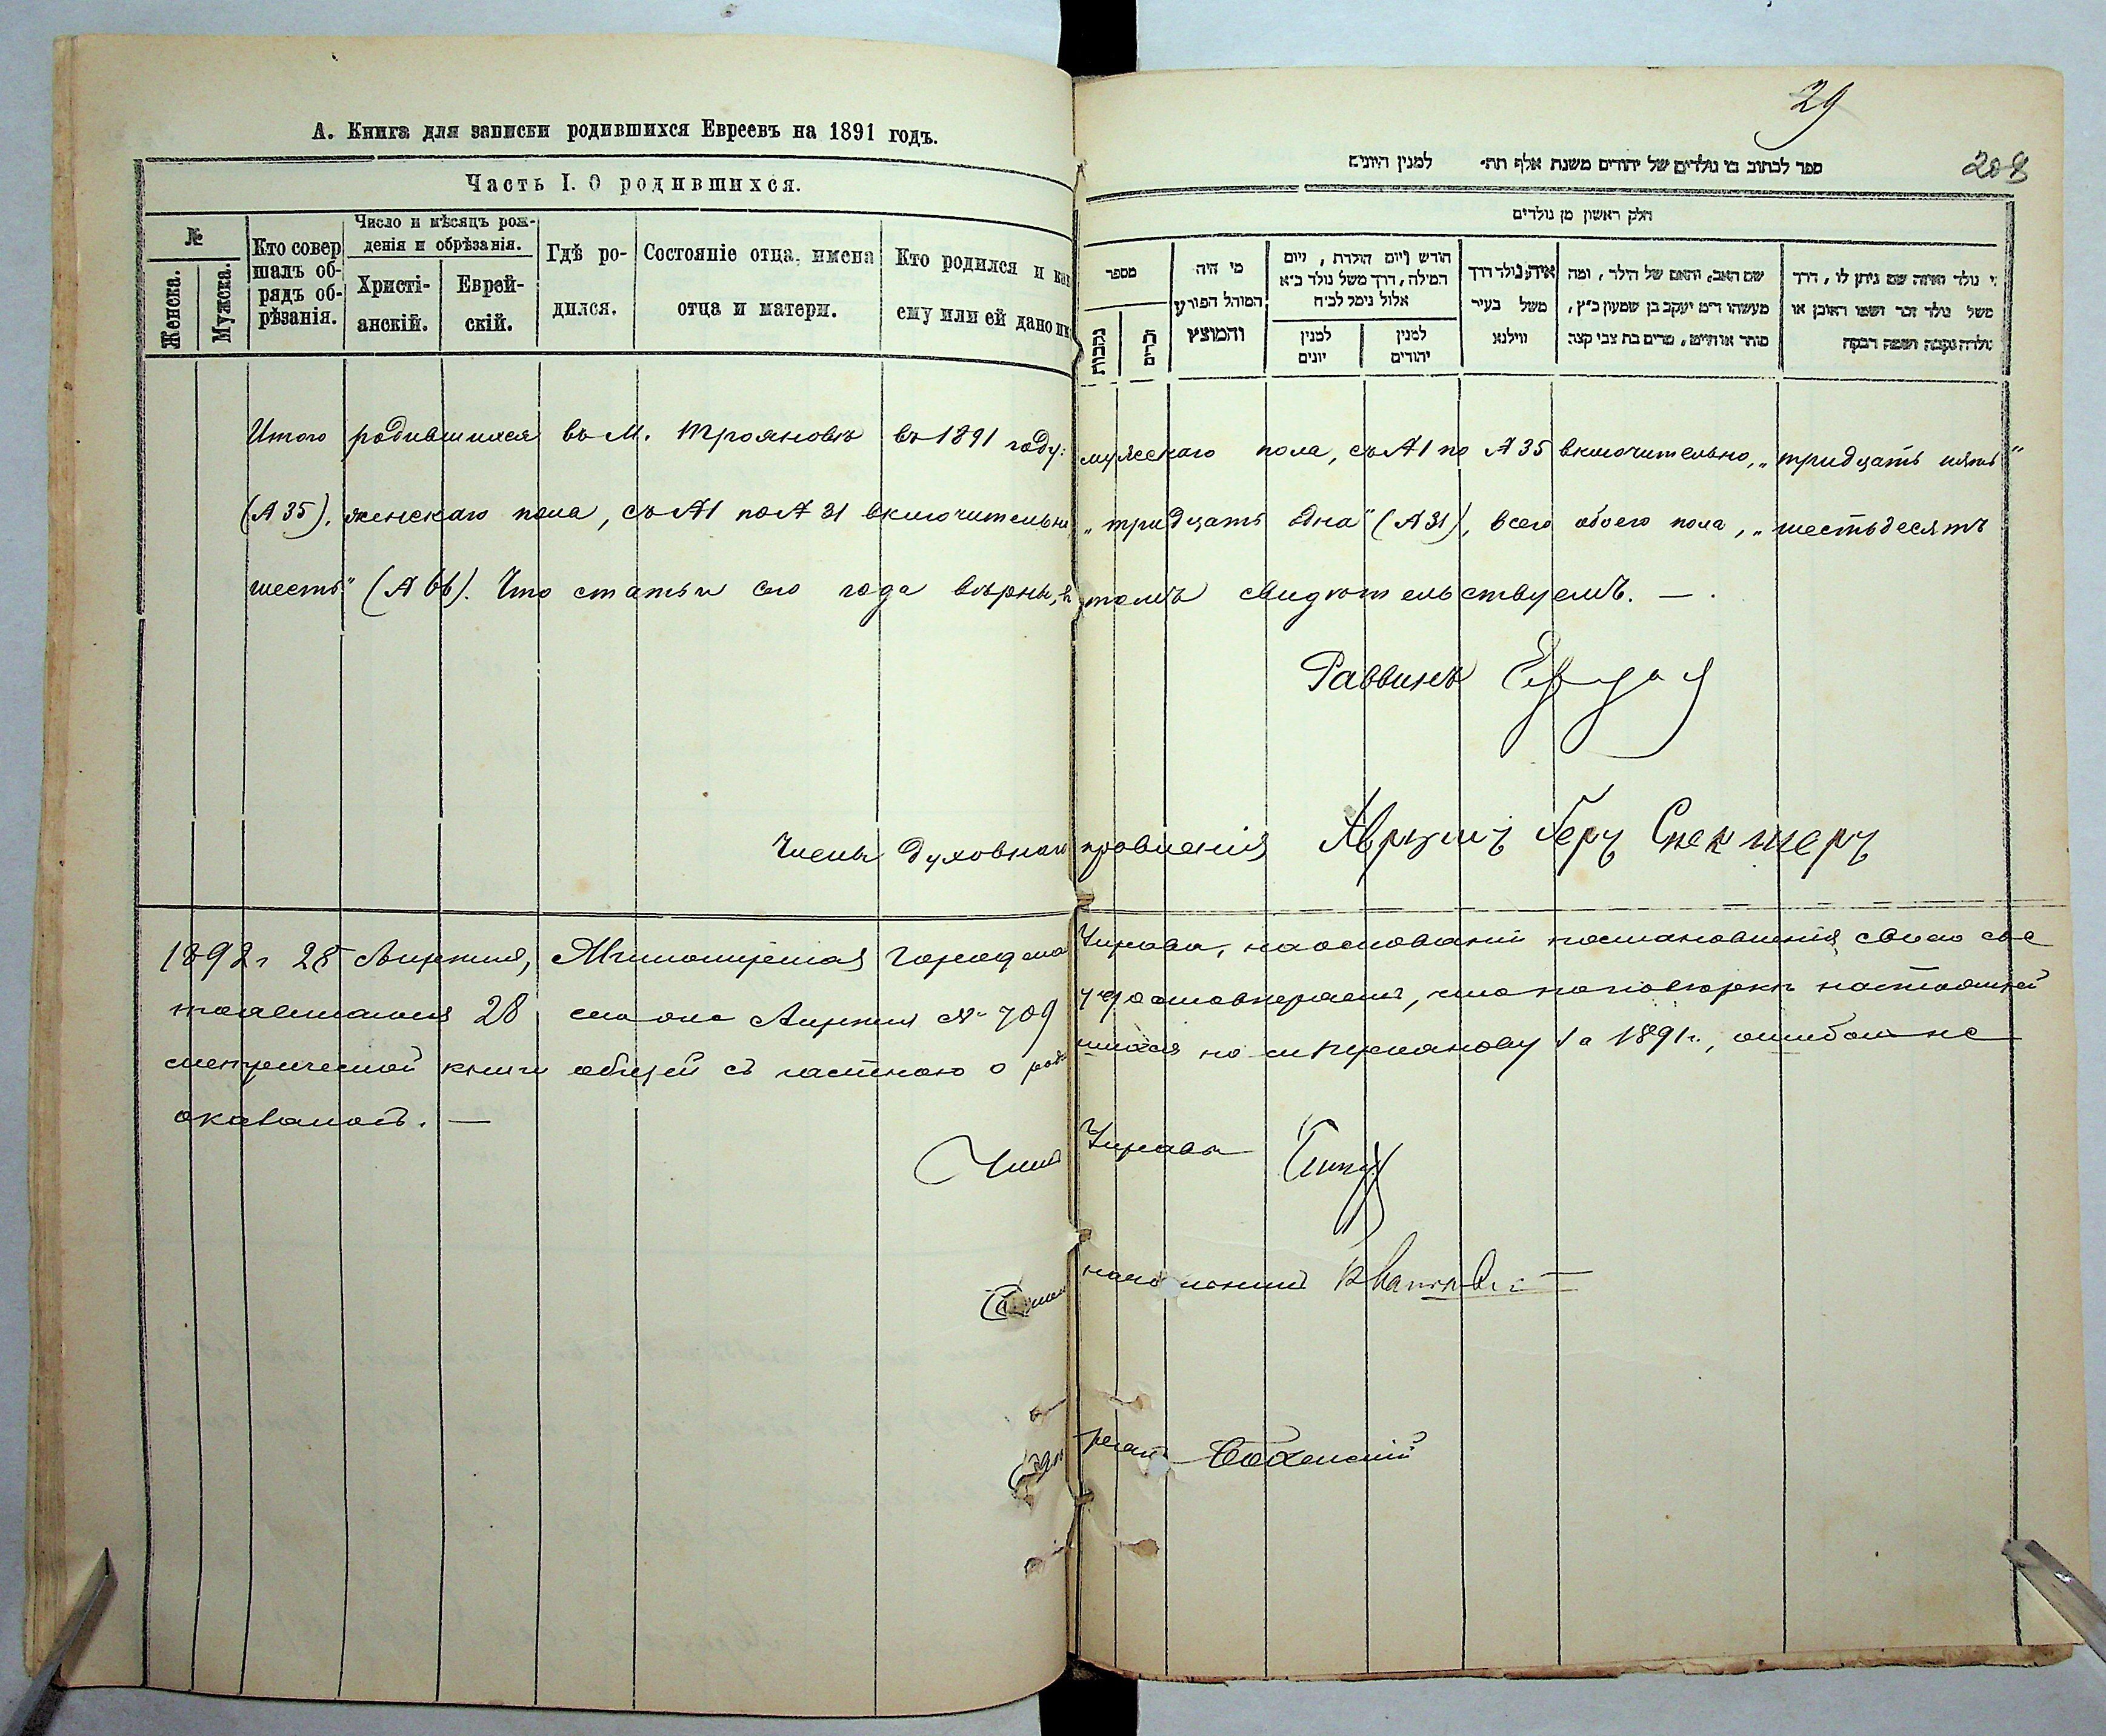 А. Книга для записки родившихся Евреевъ на 1891 годъ.
Часть I. О родившихся.
№
Женска.
Мужска.
Кто совер
шалъ об-
рядъ об-
рѣзанія.
Число и мѣсяцъ рож-
денія и обрѣзанія.
Христі-
анскій.
Еврей-
скій.
Гдѣ ро-
дился.
Состояніе отца, имена
отца и матери.
Кто родился и как
ему или ей дано им
29
208
ספר לכתוב בו נולדים של יהודים משנת אלף תת׳ למנין היונים
חלק ראשון מן נולדים
מספר
נקבות
זכרים
מי היה
המוהל הפורע
והמוצץ
חודש ויום הולדת, ויום
המילה, דרך משל נולד כ״א
אלול נימל לכ״ח
למנין
יונים
למנין
יהודים
איה נולד דרך
משל בעיר
ווילנא
שם האב, והאם של הילד, ומה
מעשהו ד״מ יעקב בן שמעון כ״ץ,
סוחר או חייט, מרים בת צבי קצב
מי נולד ואיזה שם ניתן לו, דרך
משל נולד זכר ושמו ראובן או
נולדה נקבה ושמה רבקה
Итого родившихся въ М. Трояновѣ въ 1891 году: мужскаго пола, съ № 1 по № 35 включительно, „тридцать пять“
(№ 35), женскаго пола, съ № 1 по № 31 включительно, „тридцать одна“ (№ 31), всего обоего пола, „шестьдесятъ
шесть“ (№ 66). Что статьи сего года вѣрны, въ томъ свидѣтельствуемъ. —
Раввинъ
Члены духовнаго правленія Аврумъ Беръ Спекторъ
1892 г 28 Апрѣля, Житомірская Городская Управа, на основаніи постановленія своего сос
тоявшагося 28 сего Апрѣля № 709 удостовѣряетъ, что по повѣркѣ настоящей
метрической книги общей съ частною о родившихся по м. Троянову за 1891 г., ошибокъ не
оказалось. —
Членъ Управы